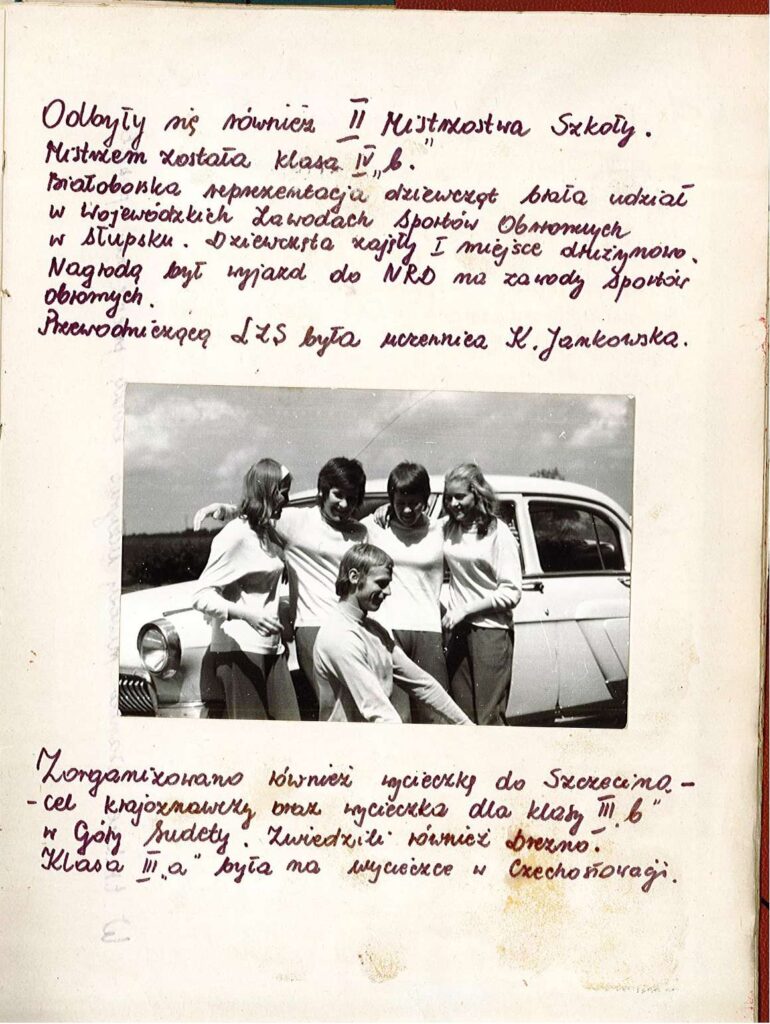 Odbyły się również II Mistrzostwa Szkoły.
Mistrzem została klasa IV „b".
Białoborska reprezentacja dziewcząt brała udział
w Wojewódzkich Zawodach Sportów Obronnych
w Słupsku. Dziewczęta zajęły I miejsce drużynowo.
Nagrodą był wyjazd do NRD na zawody Sportów
obronnych.
Przewodniczącą LZS była uczennica K. Jankowska.
Zorganizowano również wycieczkę do Szczecina -
- cel krajoznawczy oraz wycieczka dla klasy III „b"
w Góry Sudety. Zwiedzili również Drezno.
Klasa III „a" była na wycieczce w Czechosłowacji.